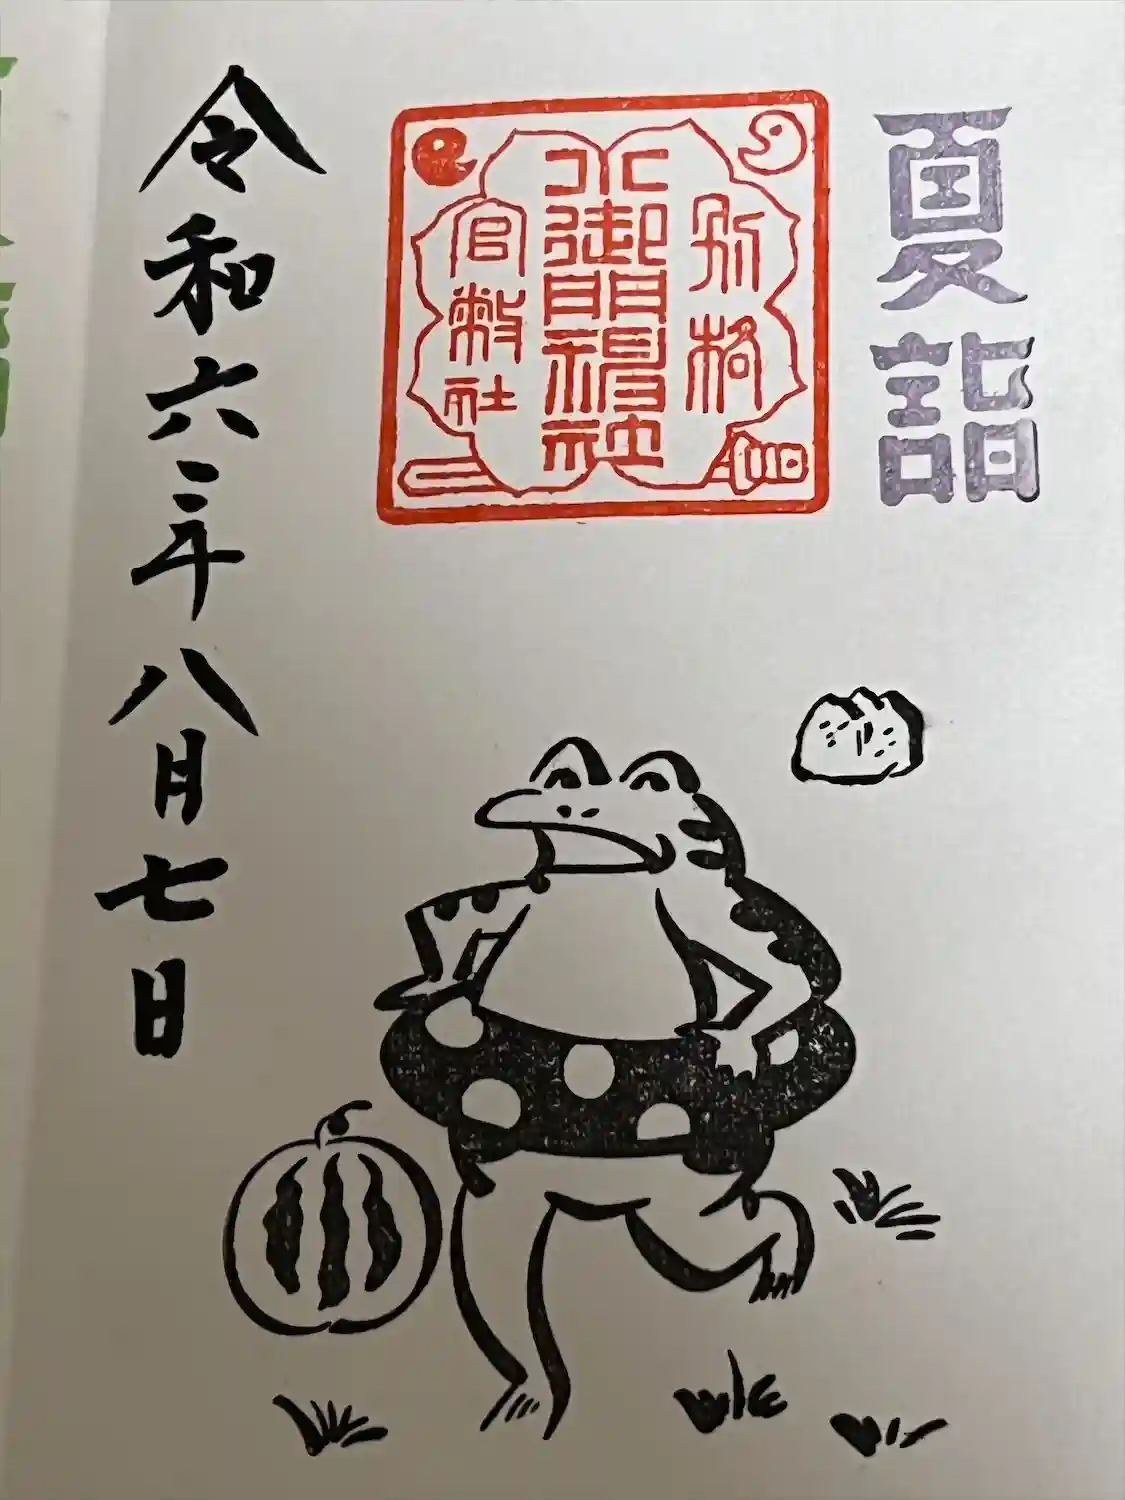 夏詣
別格
小御門神社
官幣社
令和六年八月七日